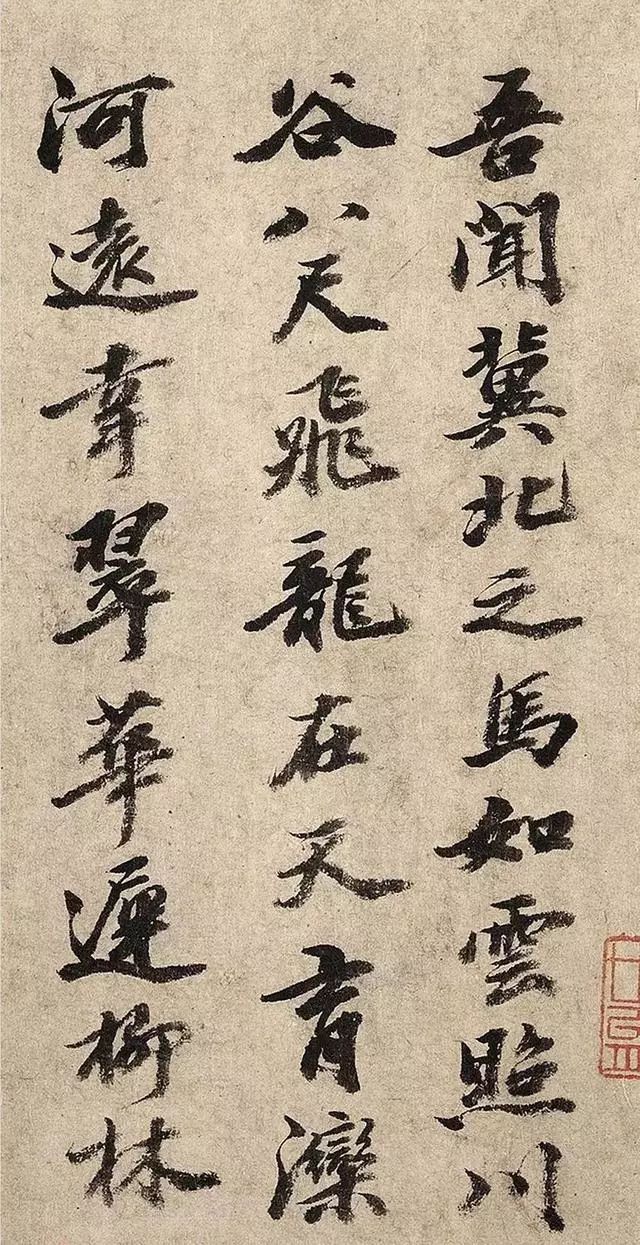 吾聞冀北之馬如雲照川
谷八尺飛龍在天育灤
河遠幸翠華邇柳林